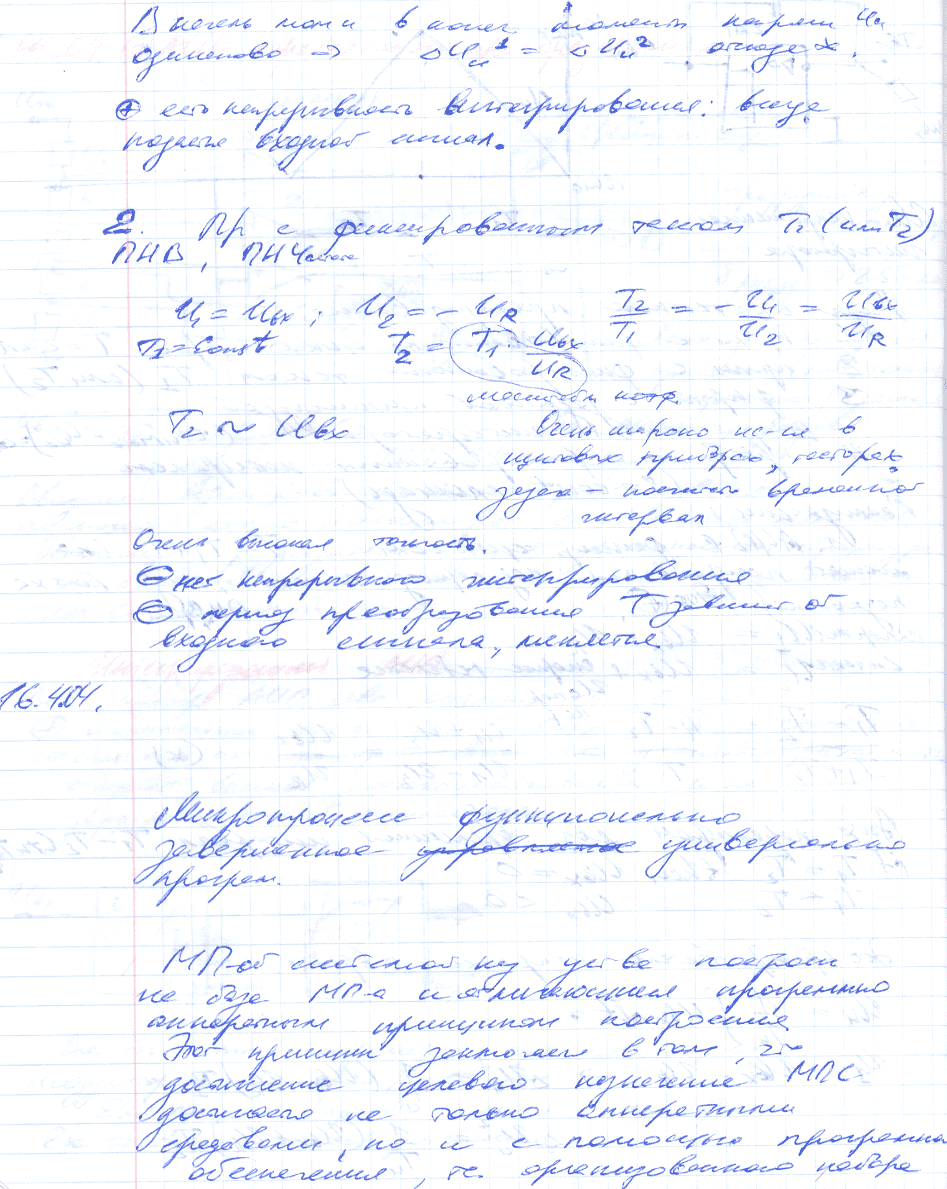 В начель мом и в конеч. моменты напряж Uи
одинаково => ΔUи¹ = ΔUи² отсюда *.
⊕ есть непрерывность интегрирования: всегда
подается входной сигнал.
2. Пр с фиксированным тактом T₁ (или T₂)
ПНВ, ПНЧастота
U₁ = Uвх ; U₂ = - UR T₂/T₁ = - U₁/U₂ = Uвх/UR
T₁ = const T₂ = T₁ · Uвх/UR
масштабн коэф.
T₂ ~ Uвх Очень широко ис-ся в
щитовых приборах, тесторах
задача – посчитать временной
интервал
Очень высокая точность.
⊖ нет непрерывного интегрирования
⊖ период преобразования T зависит от
входного сигнала, меняется
16.04.
Микропроцесс функционально
завершенное управляемое универсально
програм.
МП-ой системой наз уст-ва построен
на базе МП-а и отличающиеся программно
аппаратным принципом построения
Этот принцип заключаеся в том, что
достижение целевого назначение МПС
достигается не только аппаратными
средствами, но и с помощью программн
обеспечения, т.е. организованного набора